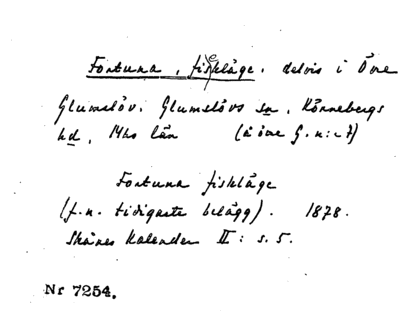 Fortuna, fiskläge, delvis i Övre
Glumslöv, Glumslövs sn, Rönnebergs
hd, Mhs län (å övre G. n:r 7)
Fortuna fiskläge
(f.n. tidigaste belägg). 1878.
Skånes Kalender II: s. 5.
Nr 7254.